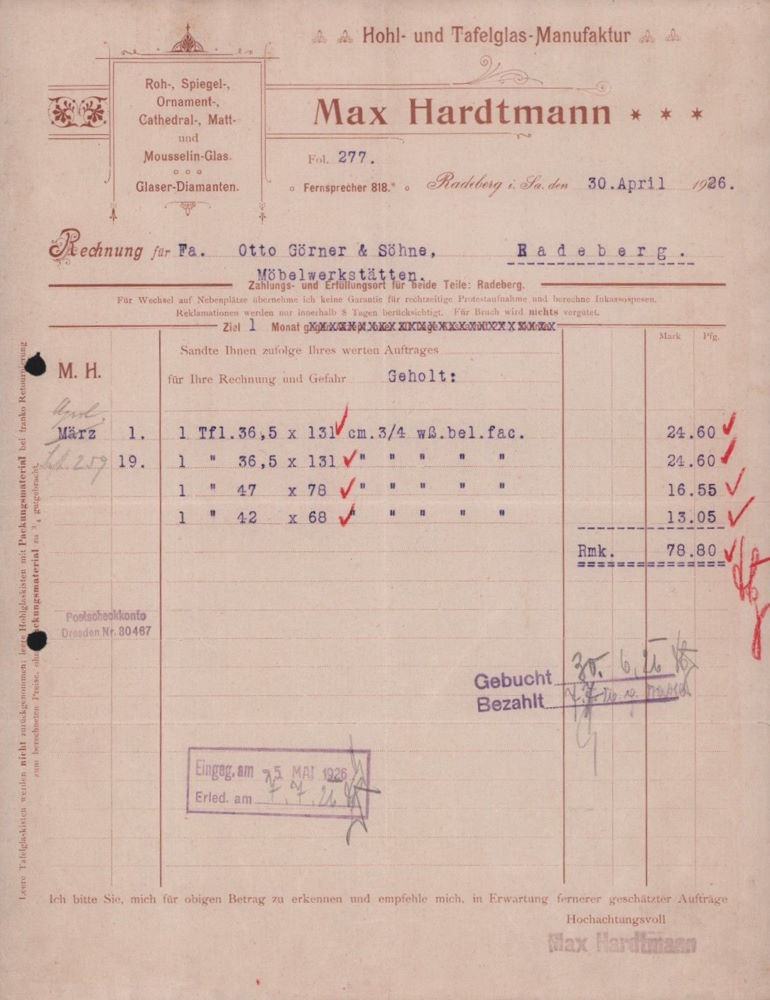 Hohl- und Tafelglas-Manufaktur
Max Hardtmann
Roh-, Spiegel-,
Ornament-,
Cathedral-, Matt-
und
Mousselin-Glas.
Glaser-Diamanten.
Fol. 277.
Fernsprecher 818.
Radeberg i. Sa. den 30.April 1926.
Rechnung für Fa. Otto Görner & Söhne, Radeberg.
Möbelwerkstätten.
Zahlungs- und Erfüllungsort für beide Teile: Radeberg.
Für Wechsel auf Nebenplätze übernehme ich keine Garantie für rechtzeitige Protestaufnahme und berechne Inkassospesen.
Reklamationen werden nur innerhalb 8 Tagen berücksichtigt. Für Bruch wird nichts vergütet.
Ziel 1 Monat
Mark Pfg.
Sandte Ihnen zufolge Ihres werten Auftrages
M. H.
für Ihre Rechnung und Gefahr Geholt:
April
März 1. 1 Tfl.36,5 x 131 cm.3/4 wß.bel.fac. 24.60
19. 1 " 36,5 x 131 " " " " " 24.60
1 " 47 x 78 " " " " " 16.55
1 " 42 x 68 " " " " " 13.05
Rmk. 78.80
Postscheckkonto
Dresden Nr. 30467
Gebucht 30. 6. 26
Bezahlt 7. 7.
Eingeg. am 5. MAI 1926
Erled. am 7. 7. 26
Leere Tafelglaskisten werden nicht zurückgenommen; leere Hohlglaskisten mit Packungsmaterial bei franko Retournierung
zum berechneten Preise, ohne Packungsmaterial zu 3/4 gutgebracht.
Ich bitte Sie, mich für obigen Betrag zu erkennen und empfehle mich, in Erwartung fernerer geschätzter Aufträge
Hochachtungsvoll
Max Hardtmann